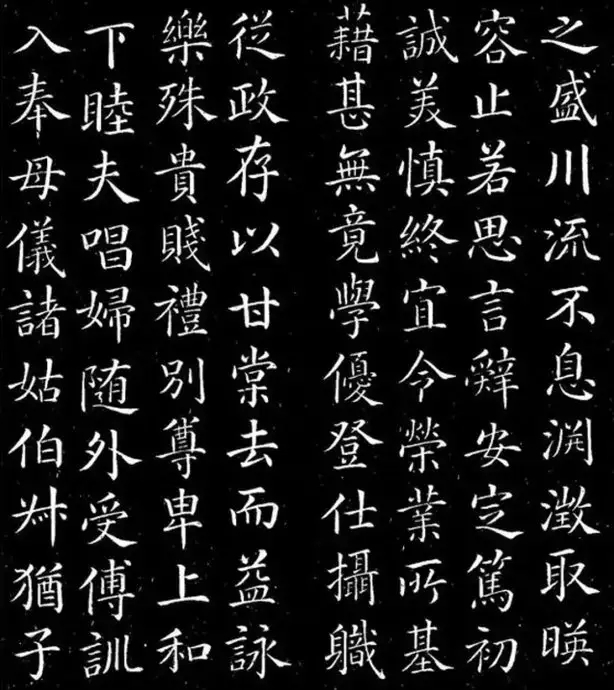 之盛川流不息渊澂取暎
容止若思言辤安定篤初
誠美慎終宜令榮業所基
藉甚無竟學優登仕攝職
従政存以甘棠去而益詠
樂殊貴賤禮別尊卑上和
下睦夫唱婦随外受傅訓
入奉母儀諸姑伯叔猶子